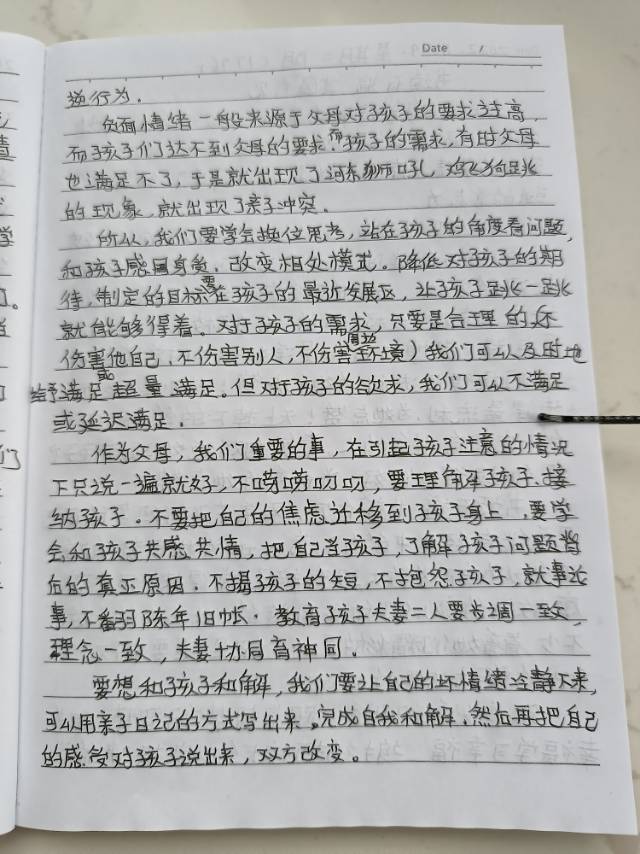 Date /
逆行为。
负面情绪一般来源于父母对孩子的要求过高,
而孩子们达不到父母的要求?而孩子的需求,有时父母
也满足不了,于是就出现了河东狮吼,鸡飞狗跳
的现象,就出现了亲子冲突。
所以,我们要学会换位思考,站在孩子的角度看问题,
和孩子感同身受,改变相处模式。降低对孩子的期
待,制定的目标要在孩子的最近发展区,让孩子跳一跳
就能够得着。对于孩子的需求,只要是合理的(不
伤害他自己,不伤害别人,不伤害周边环境)我们可以及时地
给予满足或超量满足。但对于孩子的欲求,我们可以不满足
或延迟满足。
作为父母,我们重要的事,在引起孩子注意的情况
下只说一遍就好,不唠唠叨叨,要理解孩子,接
纳孩子。不要把自己的焦虑迁移到孩子身上,要学
会和孩子共感共情,把自己当孩子,了解孩子问题背
后的真正原因。不揭孩子的短,不抱怨孩子,就事论
事,不翻陈年旧帐。教育孩子夫妻二人要步调一致,
理念一致,夫妻协同育神同。
要想和孩子和解,我们要让自己的坏情绪冷静下来,
可以用亲子日记的方式写出来,完成自我和解,然后再把自己
的感受对孩子说出来,双方改变。